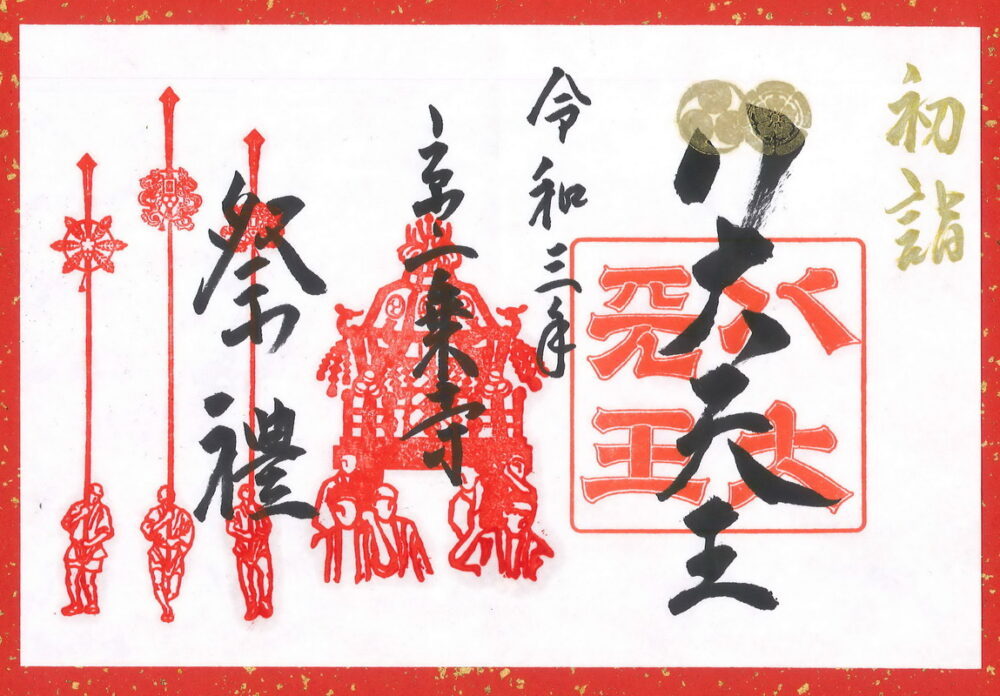 初詣
八大天王
八大
天王
令和三年
京一乗寺
祭禮